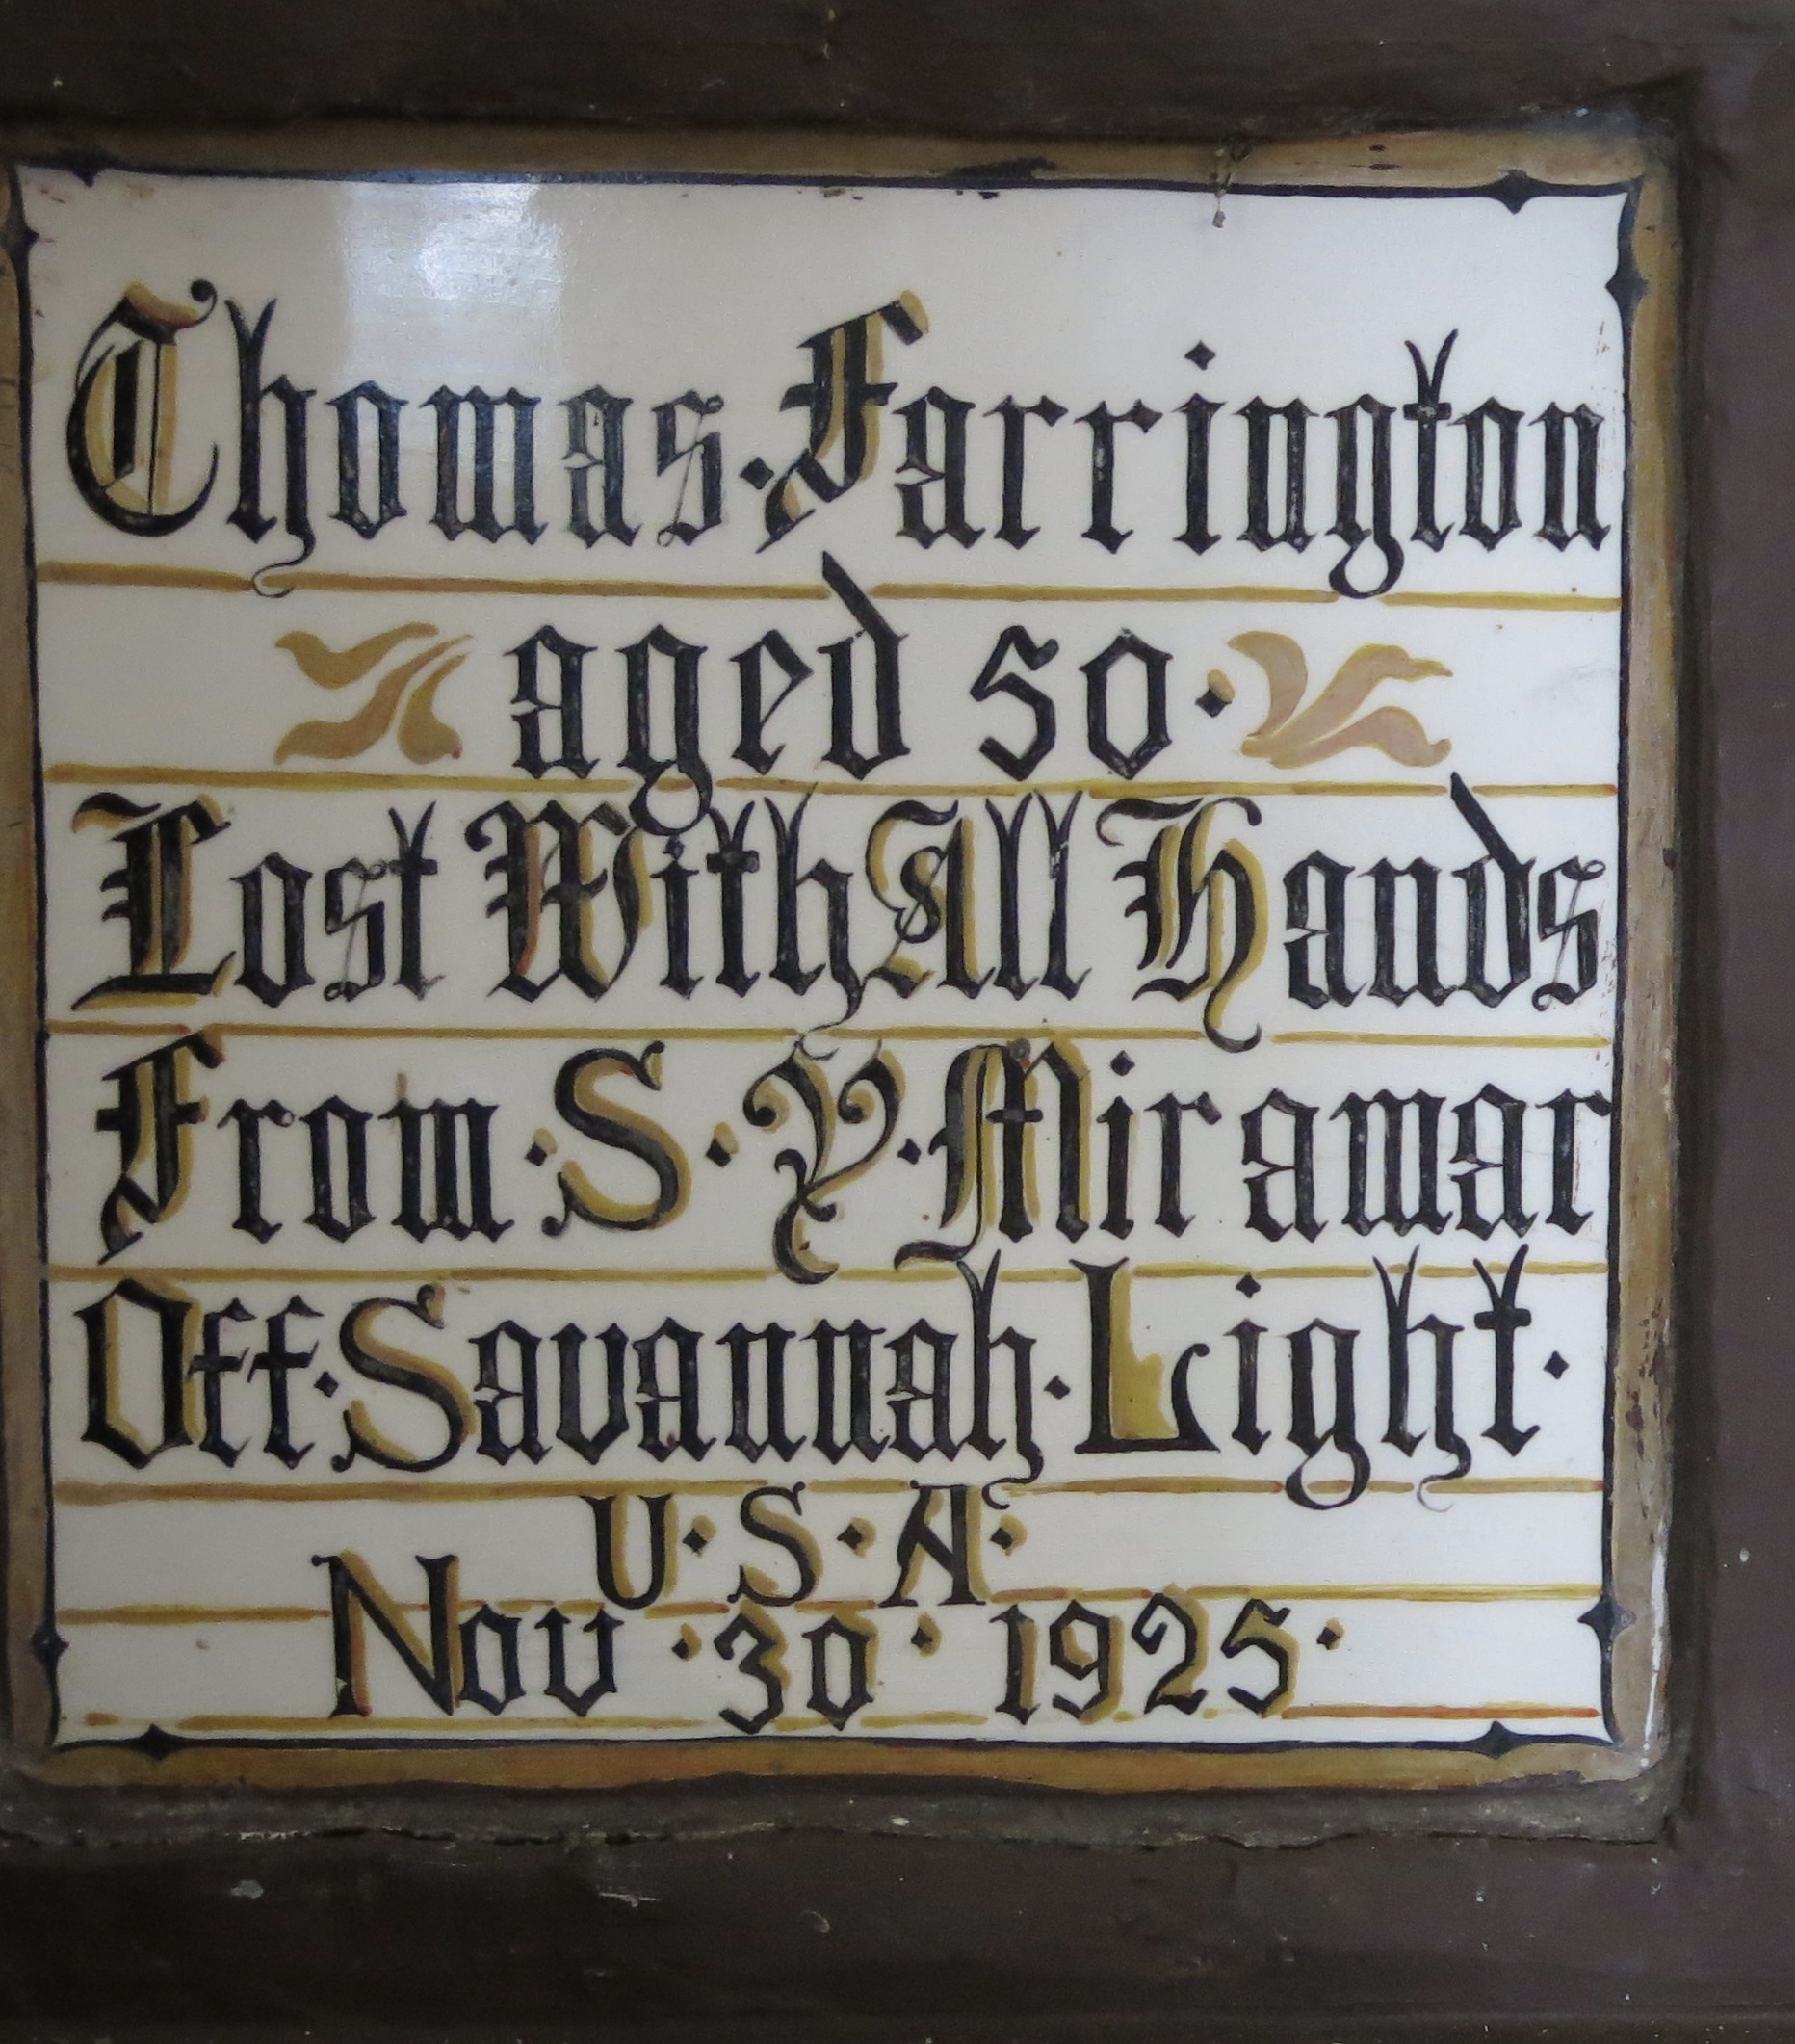 Thomas·Farrington
aged 50·
Lost With All Hands
From·S·Y·Miramar
Off·Savannah·Light·
U·S·A·
Nov·30·1925·